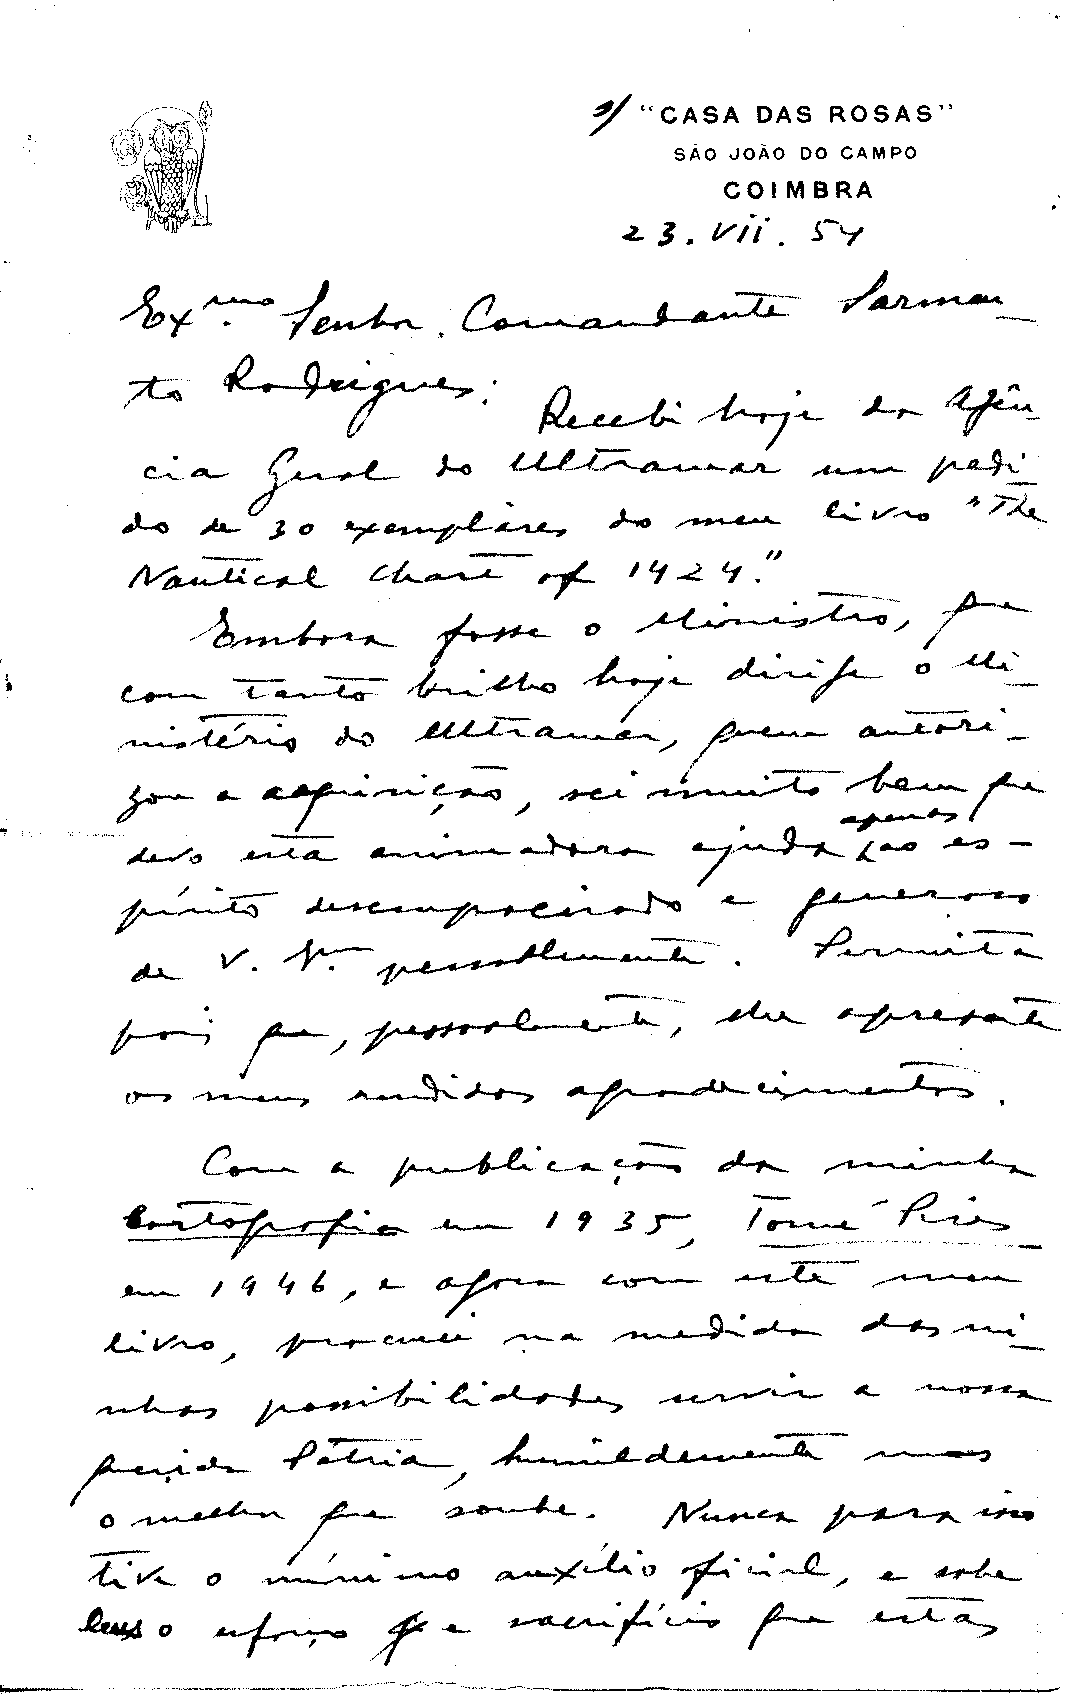 "CASA DAS ROSAS"
SÃO JOÃO DO CAMPO
COIMBRA
23.VII.54
Ex.mo Senhor Comandante Sarmen-
to Rodrigues:
Recebi hoje da Agên-
cia Geral do Ultramar um pedi-
do de 30 exemplares do meu livro "The
Nautical Chart of 1424."
Embora fosse o Ministro, que
com tanto brilho hoje dirige o Mi-
nistério do Ultramar, quem autori-
zou a aquisição, sei muito bem que
devo esta animadora ajuda apenas ao es-
pírito desempoeirado e generoso
de V. pessoalmente. Permita
pois que, pessoalmente, lhe apresente
os meus rendidos agradecimentos.
Com a publicação da minha
Cartografia em 1935, Tomé Pires
em 1946, e agora com este meu
livro, procurei na medida das mi-
nhas possibilidades servir a nossa
querida Pátria, humildemente mas
o melhor que soube. Nunca para isso
tive o mínimo auxílio oficial, e sabe
Deus o esforço e sacrifício que estas